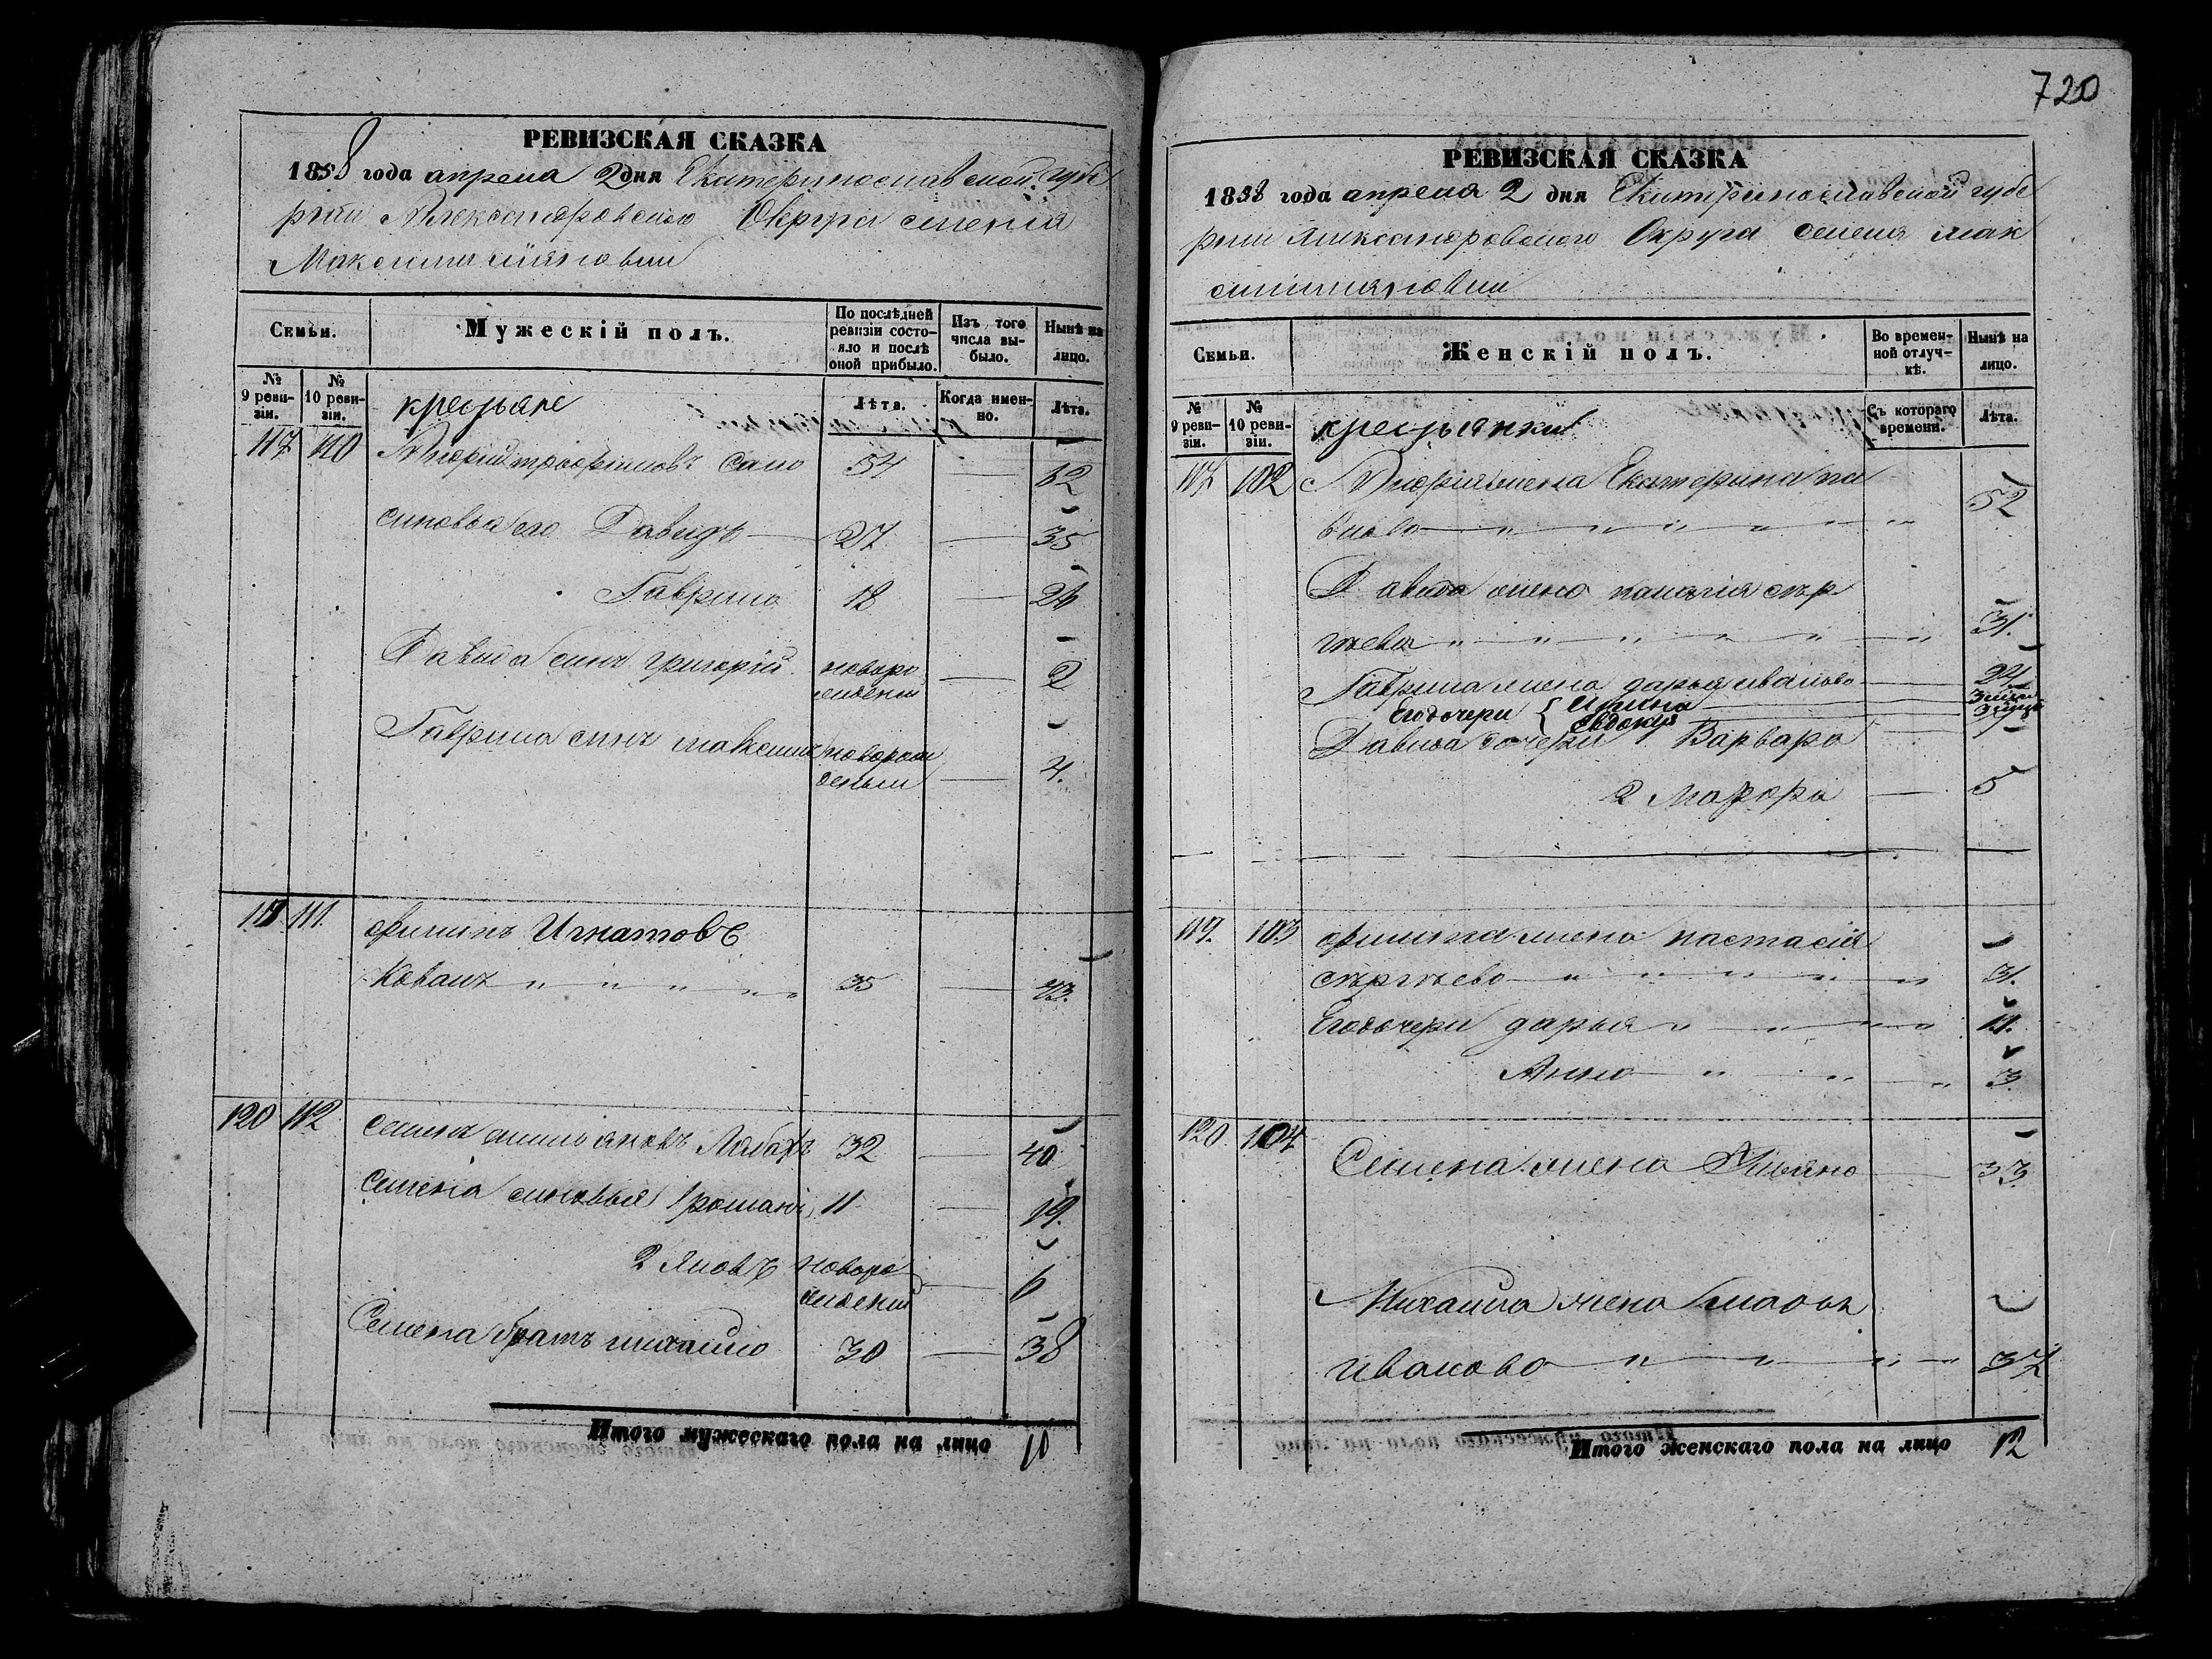 720
РЕВИЗСКАЯ СКАЗКА
1858 года апреля 2 дня Екатеринославской губе
рнии Александровского Округа имения
Максимилияновки
Семьи.
Мужескій полъ.
По послѣдней ревизіи состояло и послѣ оной прибыло.
Изъ того числа выбыло.
Нынѣ на лицо.
№ 9 ревизіи.
№ 10 ревизіи.
крестьяне
Лѣта.
Когда именно.
Лѣта.
117 110 Трофимовъ Само 54 — 62
синовья его Давидъ — 27 — 35
Гаврило 18 — 26
Давида синъ григорій новоро жденни — 2
Гаврила синъ максимъ новорож денни — 4.
111. филипъ Игнатовъ
Ковалъ " " " " 35 — 43.
120 112 семенъ Лобахъ 32 — 40
Семена синовья 1 романъ 11 — 19.
2 Яковъ новоро жденни — 6
Семена братъ михайло 30 — 38
Итого мужескаго пола на лицо 10
РЕВИЗСКАЯ СКАЗКА
1858 года апреля 2 дня Екатеринославской губе
рнии Александровского Округа имения мак
симилияновки
Семьи.
Женскій полъ.
Во временной отлучкѣ.
Нынѣ на лицо.
№ 9 ревизіи.
№ 10 ревизіи.
крестьянки
Съ котораго времени.
Лѣта.
117 102 жена Екатерина па
влова — " — " — " — " 52
Давида жена палагія сѣр
гѣева — " — " — " — " 31.
Гаврила жена дарья иванова — 24
Его дочери { Ирина
Евдокія
Давида дочери 1 Варвара — 7
2 Марфа — 5
119. 103 филипа жена настасія
сѣргѣева — " — " — " — " 31.
Его дочери дарья " — " — " 11.
Анна " " " 3.
120. 104 Семена жена Уляна — 33
Михаила жена
иванова — " — " — " — 37
Итого женскаго пола на лицо 12